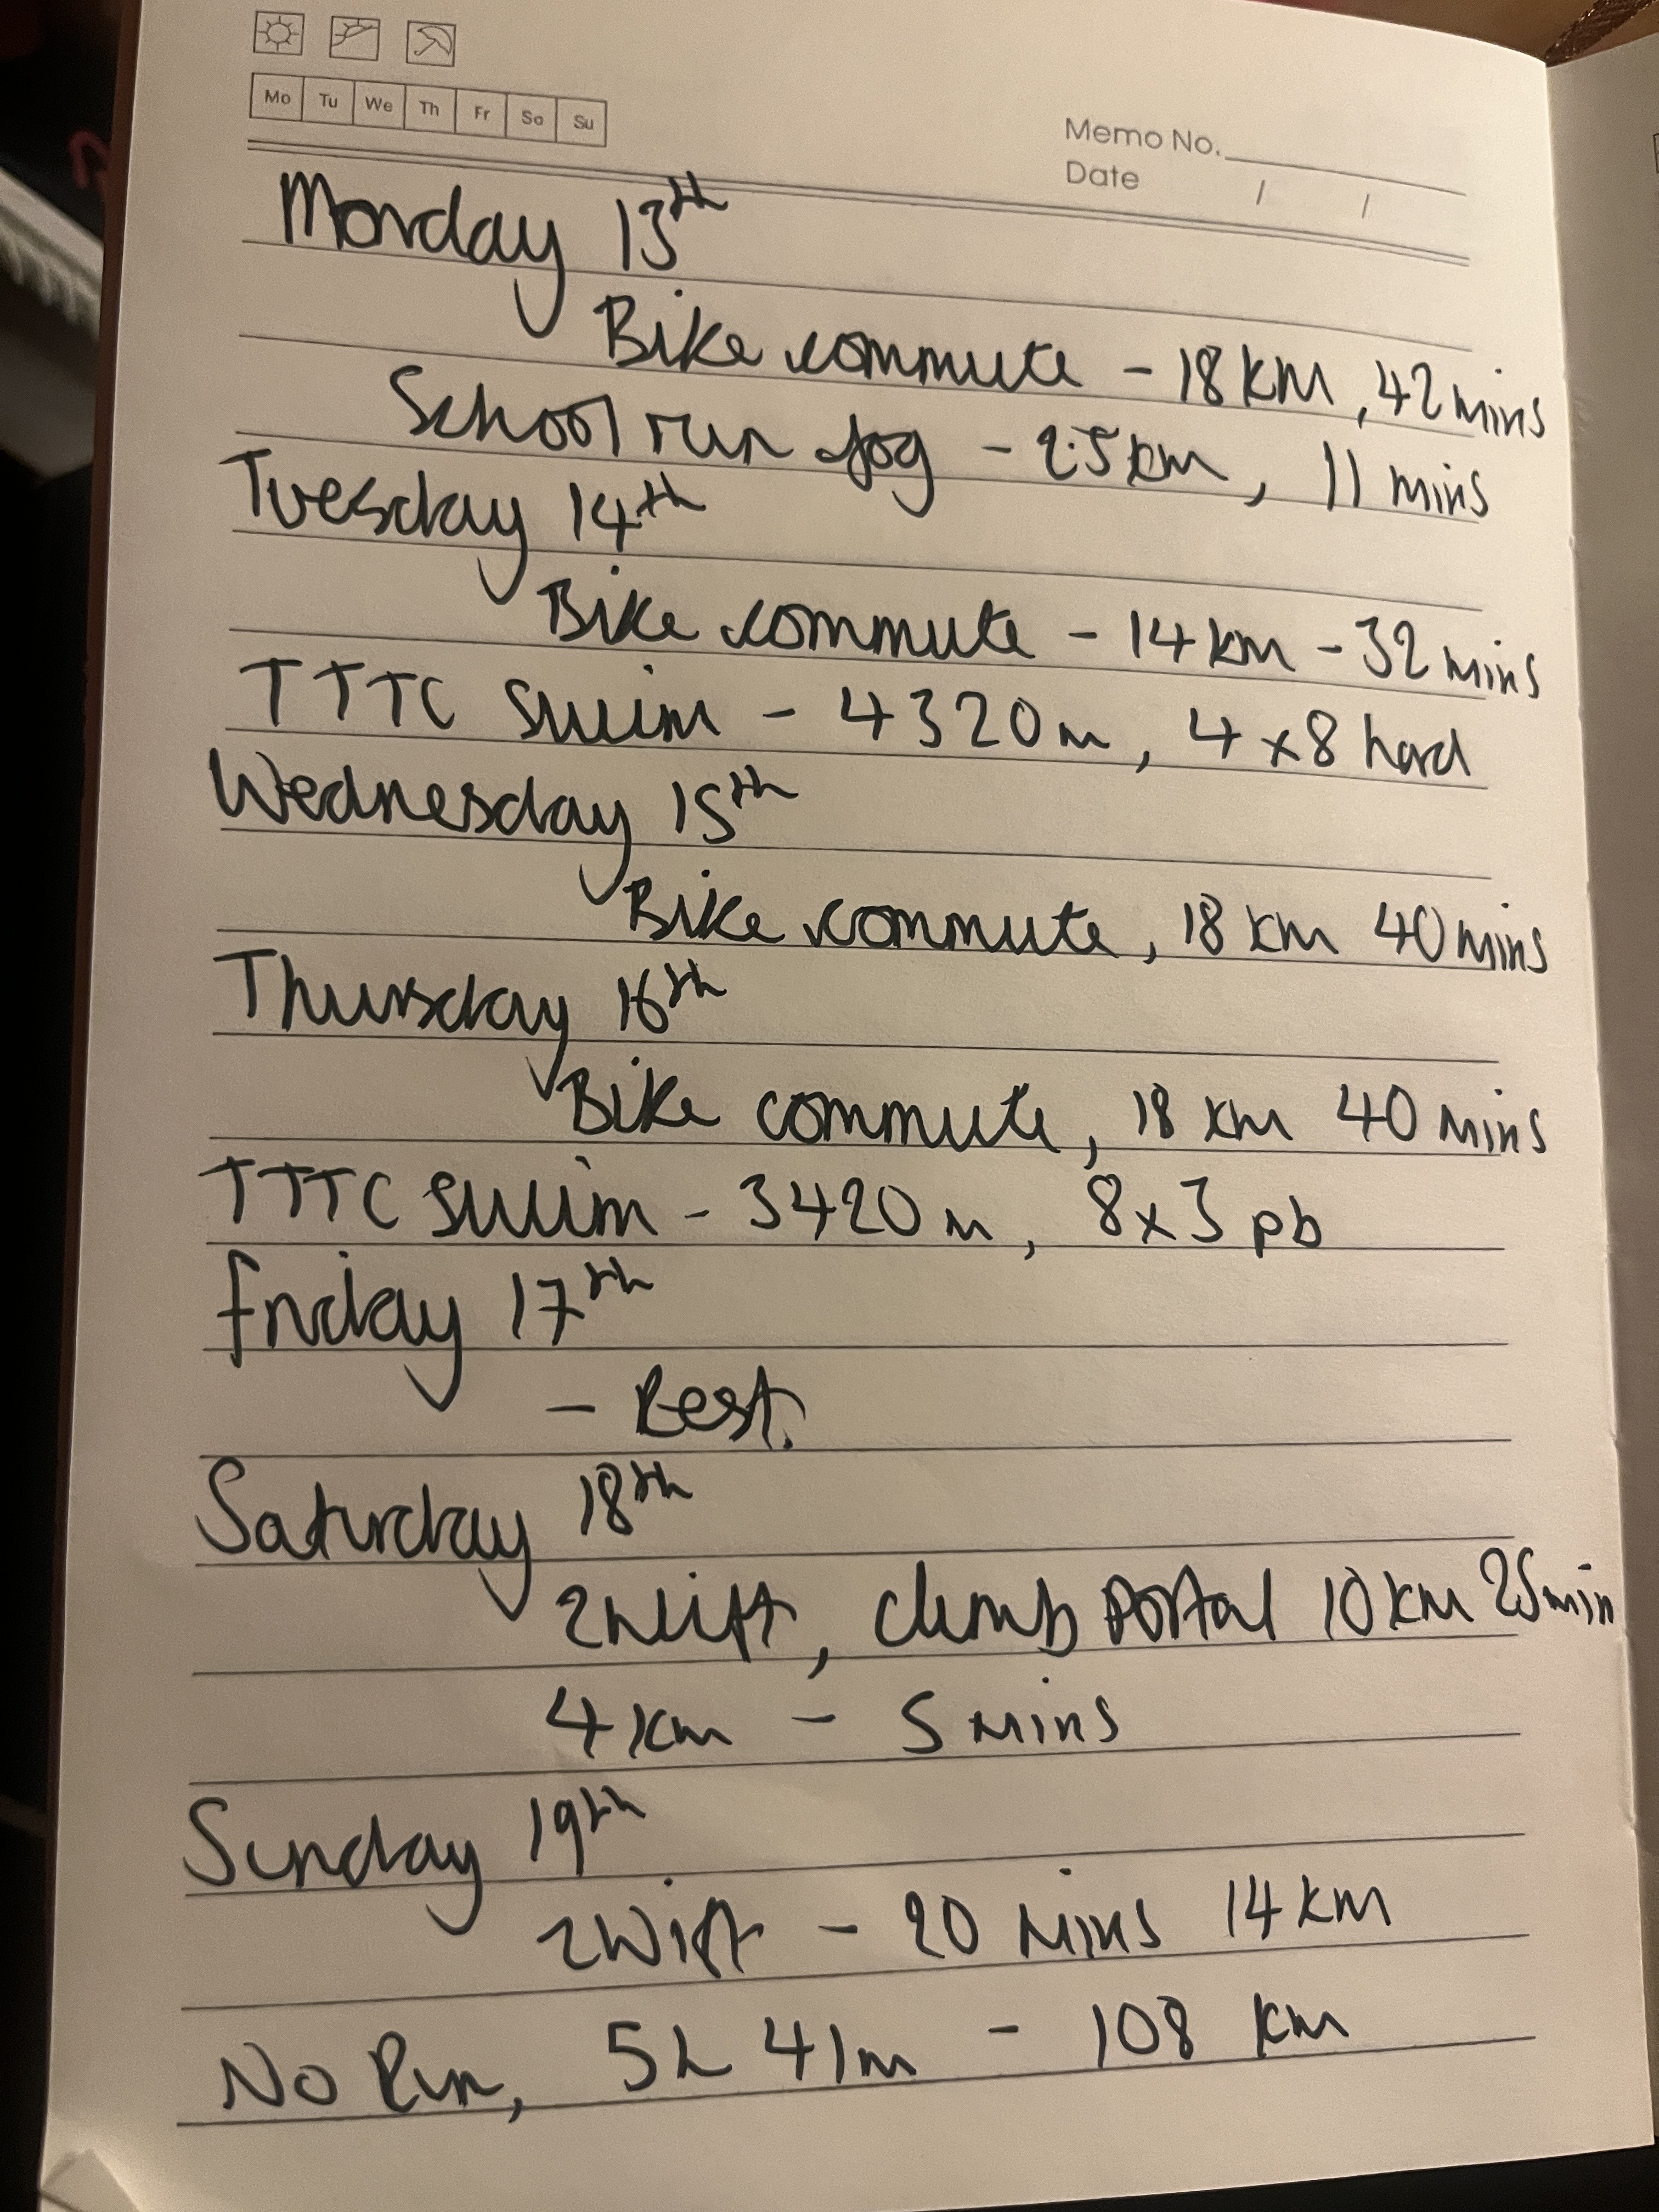 Mo Tu We Th Fr Sa Su
Memo No.
Date / /
Monday 13th
Bike commute - 18 km, 42 mins
School run jog - 2.5 km, 11 mins
Tuesday 14th
Bike commute - 14 km - 32 mins
TTTC swim - 4320m, 4x8 hard
Wednesday 15th
Bike commute, 18 km 40 mins
Thursday 16th
Bike commute, 18 km 40 mins
TTTC swim - 3420m, 8x3 pb
Friday 17th
- Rest.
Saturday 18th
Zwift, climb portal 10 km 25min
4 km - 5 mins
Sunday 19th
Zwift - 20 mins 14 km
No Run, 5h 41m - 108 km